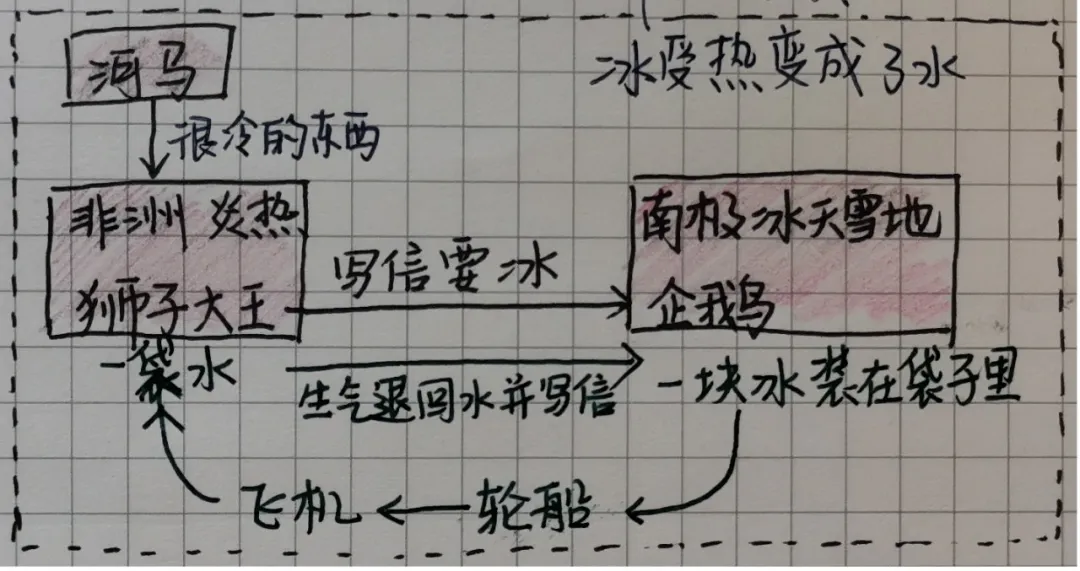 河马
冰受热变成了水
很冷的东西
非洲 炎热
狮子大王
写信要冰
南极冰天雪地
企鹅
一袋水
生气退回水并写信
一块冰装在袋子里
飞机
轮船